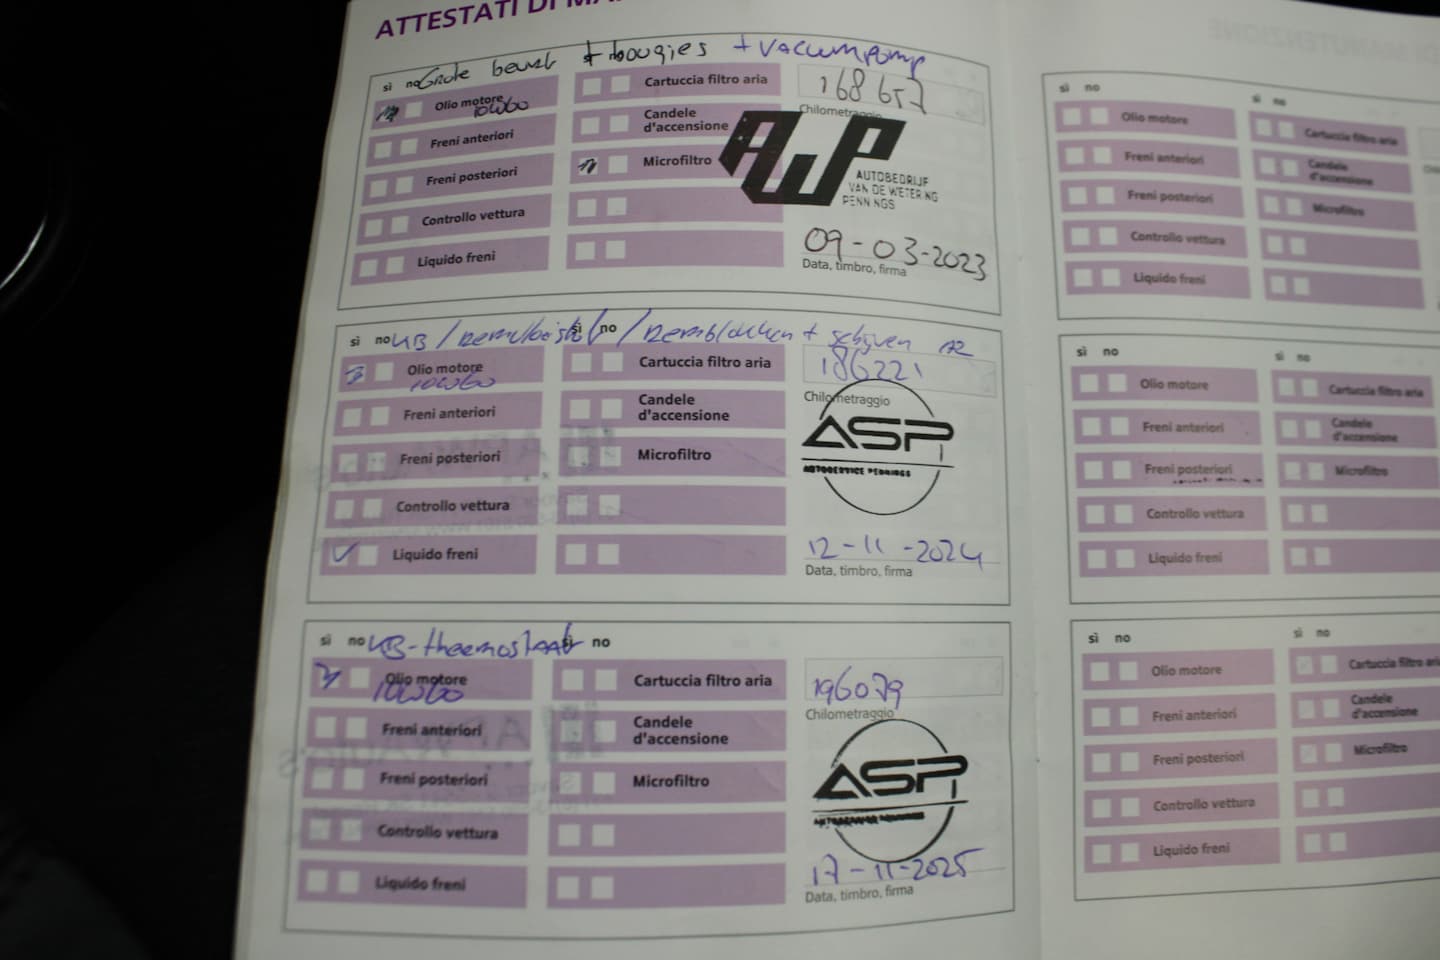 ATTESTATI DI
Grote beurt + bougies + vacuumpomp
sì no
Olio motore
10W60
Freni anteriori
Freni posteriori
Controllo vettura
Liquido freni
Cartuccia filtro aria
Candele
d'accensione
Microfiltro
168657
Chilometraggio
AWP
AUTOBEDRIJF
VAN DE WETERING
PENNINGS
09-03-2023
Data, timbro, firma
sì no
sì no
KB / Remvloeistof / Remblokken + schijven
Olio motore
10W60
Freni anteriori
Freni posteriori
Controllo vettura
Liquido freni
Cartuccia filtro aria
Candele
d'accensione
Microfiltro
186221
Chilometraggio
ASP
AUTOSERVICE PENNINGS
12-11-2024
Data, timbro, firma
sì no
sì no
KB-thermostaat
Olio motore
10W60
Freni anteriori
Freni posteriori
Controllo vettura
Liquido freni
Cartuccia filtro aria
Candele
d'accensione
Microfiltro
196079
Chilometraggio
ASP
AUTOSERVICE PENNINGS
17-11-2025
Data, timbro, firma
sì no
sì no
Olio motore
Freni anteriori
Freni posteriori
Controllo vettura
Liquido freni
Cartuccia filtro aria
Candele
d'accensione
Microfiltro
sì no
sì no
Olio motore
Freni anteriori
Freni posteriori
Controllo vettura
Liquido freni
Cartuccia filtro aria
Candele
d'accensione
Microfiltro
sì no
sì no
Olio motore
Freni anteriori
Freni posteriori
Controllo vettura
Liquido freni
Cartuccia filtro aria
Candele
d'accensione
Microfiltro